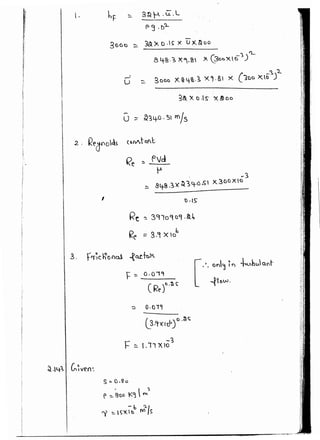 1. hF = 32 μ . ū . L
ρ g . D²
3000 = 32 x 0.15 x ū x 200
848.3 x 9.81 x (300x10⁻³)²
ū = 3000 x 848.3 x 9.81 x (300 x10⁻³)²
32 x 0.15 x 200
ū = 2340.51 m/s
2. Reynolds constant
Re = ρVd
μ
= 848.3x2340.51 x300x10⁻³
0.15
Re = 3970909.26
Re = 3.9 x 10⁶
3. Frictional factor
F = 0.079
(Re)^0.25
∴ only in turbulant flow.
= 0.079
(3.9x10⁶)^0.25
F = 1.77 x10⁻³
2.143 Given:
S = 0.80
ρ = 800 Kg/m³
γ = 15x10⁻⁶ m²/s